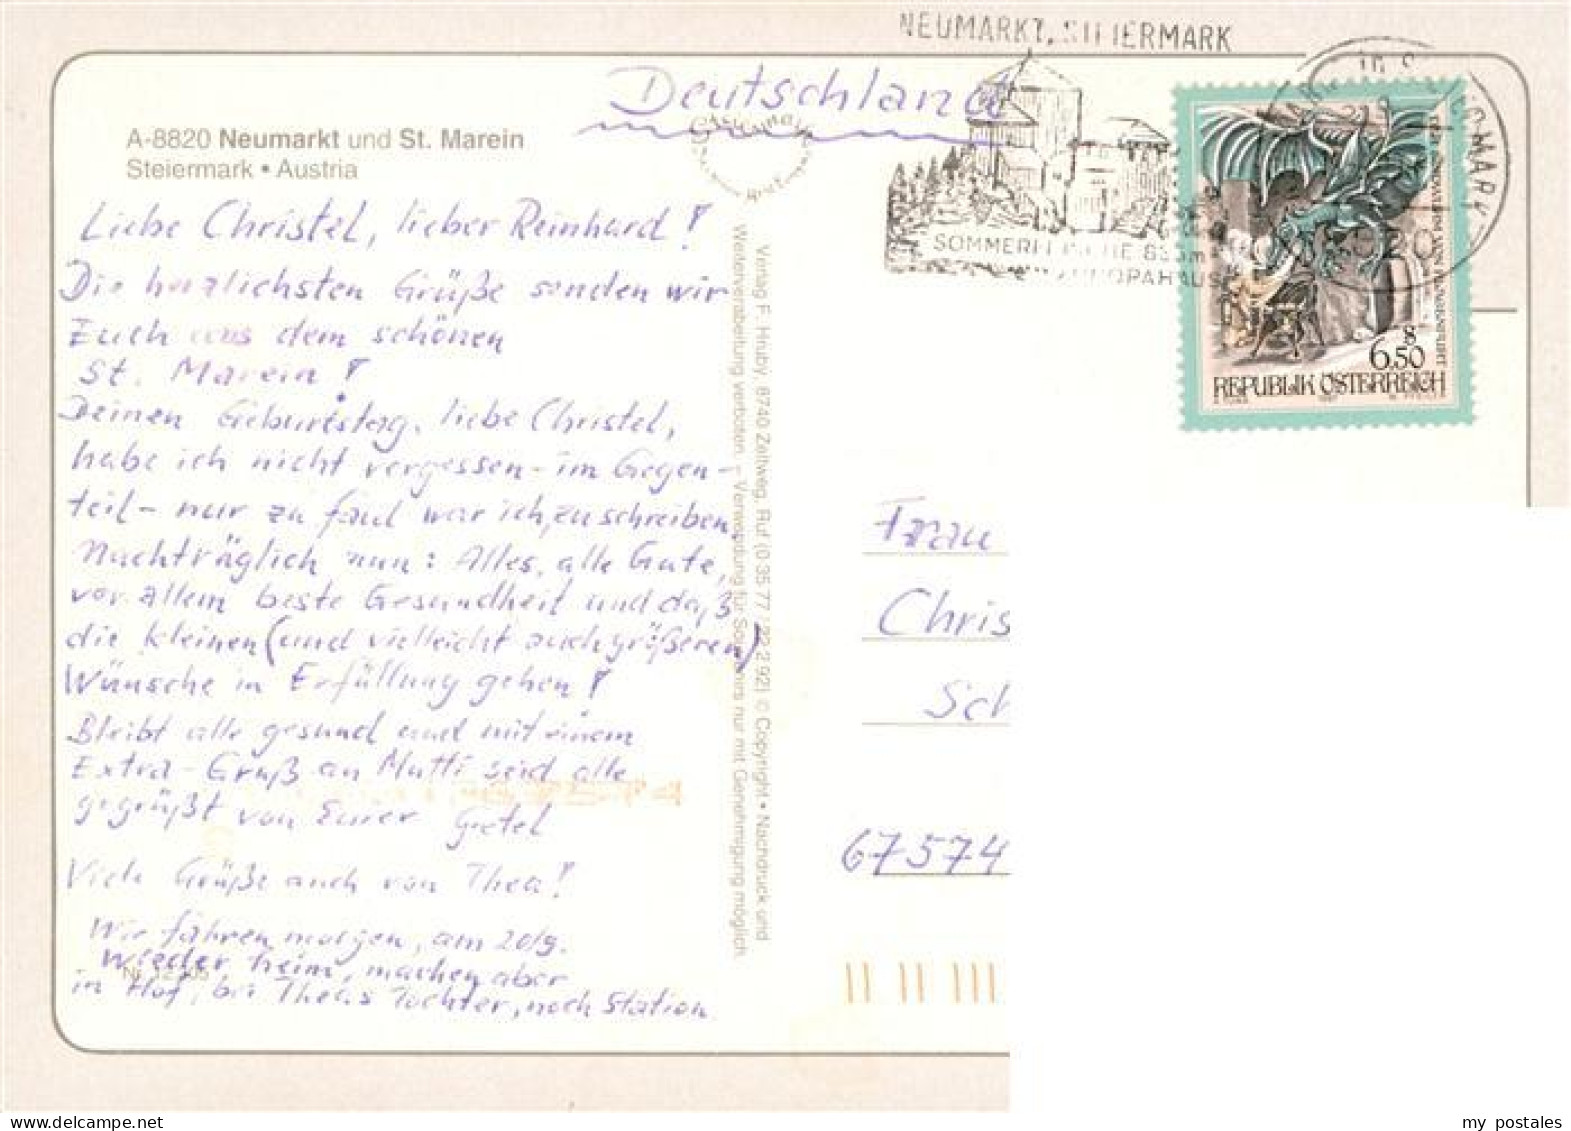 NEUMARKT, STEIERMARK
Deutschland
A-8820 Neumarkt und St. Marein
Steiermark • Austria
SOMMERFRISCHE
EUROPAHAUS
8820
6.50
REPUBLIK ÖSTERREICH
Liebe Christel, lieber Reinhard!
Die herzlichsten Grüße senden wir
Euch aus dem schönen
St. Marein!
Deinen Geburtstag, liebe Christel,
habe ich nicht vergessen - im Gegen-
teil - nur zu faul war ich, zu schreiben.
Nachträglich nun: Alles, alle Gute,
vor allem beste Gesundheit und daß
die kleinen (und vielleicht auch größeren)
Wünsche in Erfüllung gehen!
Bleibt alle gesund und mit einem
Extra-Gruß an Mutti seid alle
gegrüßt von Eurer Gretel
Viele Grüße auch von Thea!
Wir fahren morgen, am 20/9.
wieder heim, machen aber
in Hof, bei Theas Tochter, noch Station.
Verlag F. Hruby, 8740 Zeltweg, Ruf (0 35 77 / 22 2 92) © Copyright • Nachdruck und
Weiterverarbeitung verboten. – Verwendung für Souvenirs nur mit Genehmigung möglich.
Frau
Chris
Sch
67574
my postales